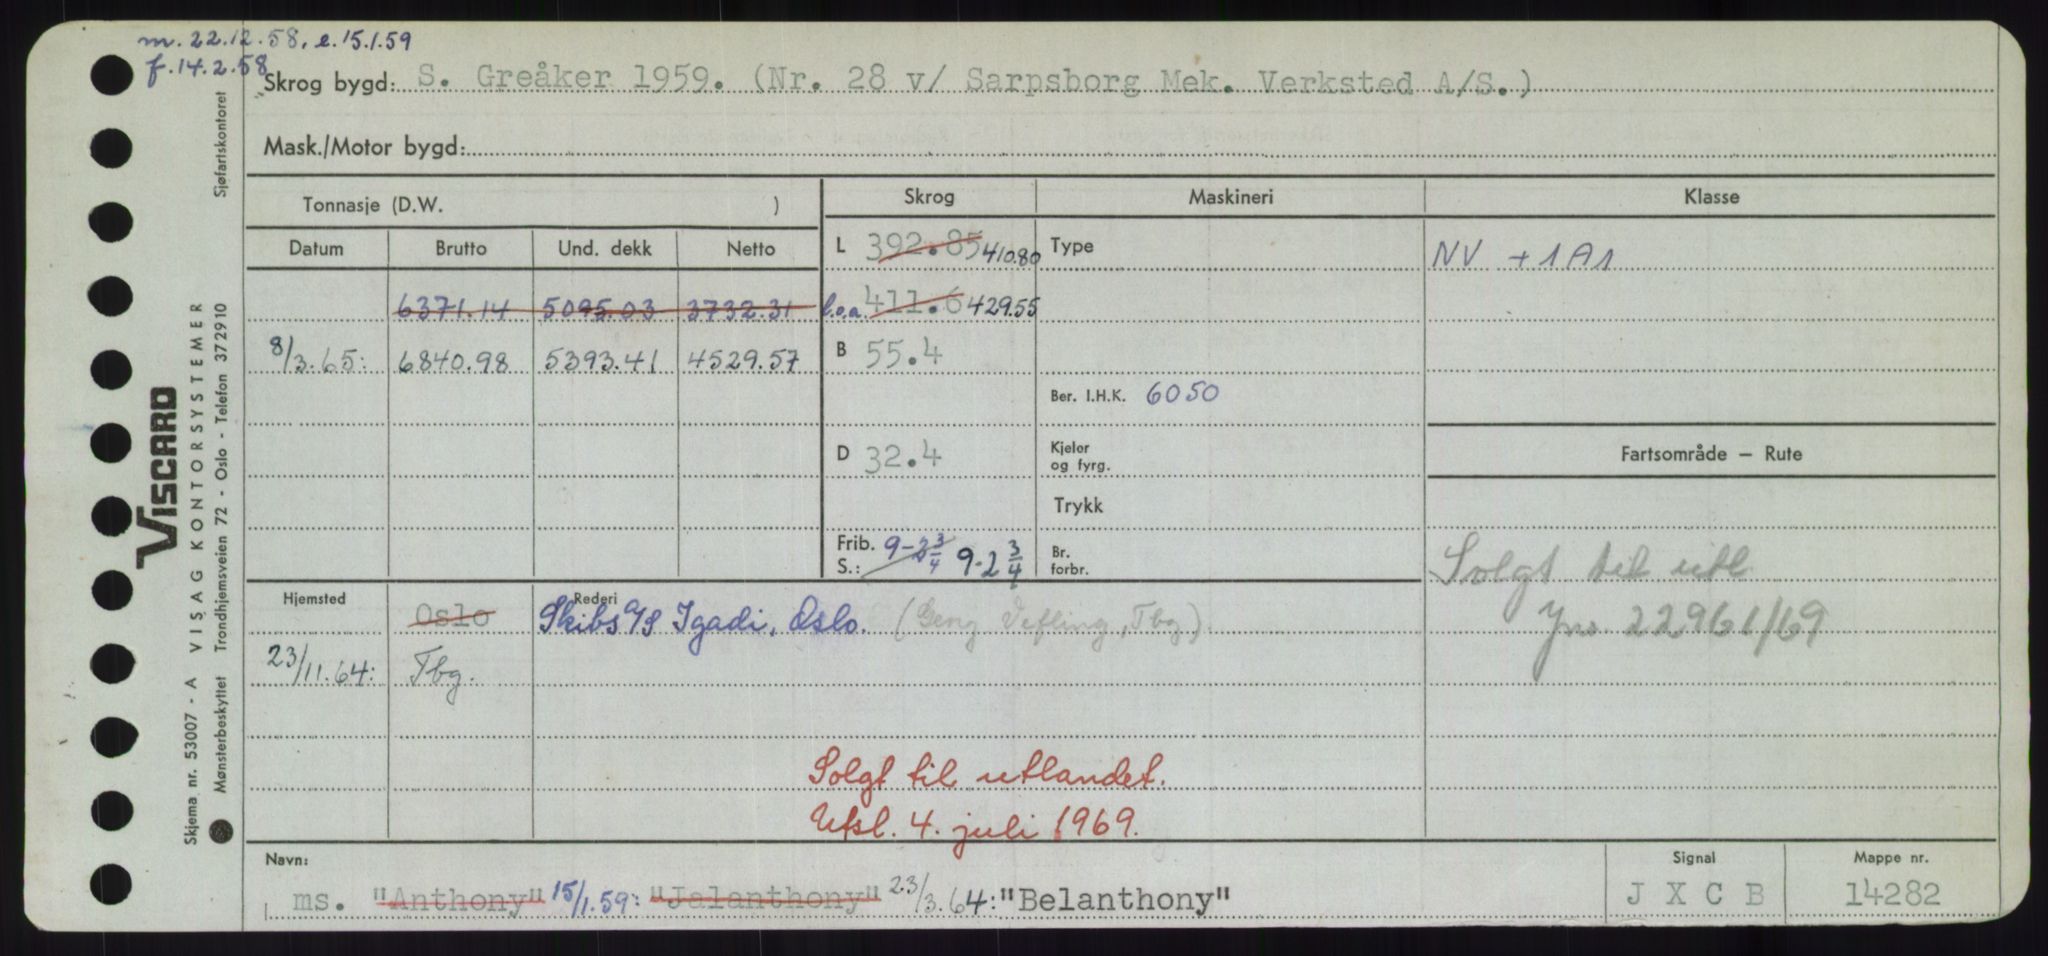 m. 22.12.58, e. 15.1.59
f. 14.2.58
Skrog bygd: S. Greåker 1959. (Nr. 28 v/ Sarpsborg Mek. Verksted A/S.)
Mask./Motor bygd:
Tonnasje (D.W. )
Skrog Maskineri Klasse
Datum Brutto Und. dekk Netto
L 392.85 410.80 Type NV +1A1
6371.14 5095.03 3732.31 l.o.a. 411.6 429.55
8/3.65: 6840.98 5393.41 4529.57 B 55.4
Ber. I.H.K. 6050
D 32.4 Kjeler og fyrg. Fartsområde — Rute
Trykk
Frib. S.: 9-2 3/4 9-2 3/4 Br. forbr.
Solgt til utl
Jnr. 22961/69
Hjemsted Oslo Rederi Skibs A/S Igadi, Oslo. (Tbg)
23/11.64: Tbg.
Solgt til utlandet.
Utsl. 4. juli 1969.
Navn: Signal Mappe nr.
ms. "Anthony" 15/1.59: "Jalanthony" 23/3.64: "Belanthony" J X C B 14282
VISCARD
Skjema nr. 53007 - A VISAG KONTORSYSTEMER
Mønsterbeskyttet Trondhjemsveien 72 - Oslo - Telefon 372910 Sjøfartskontoret